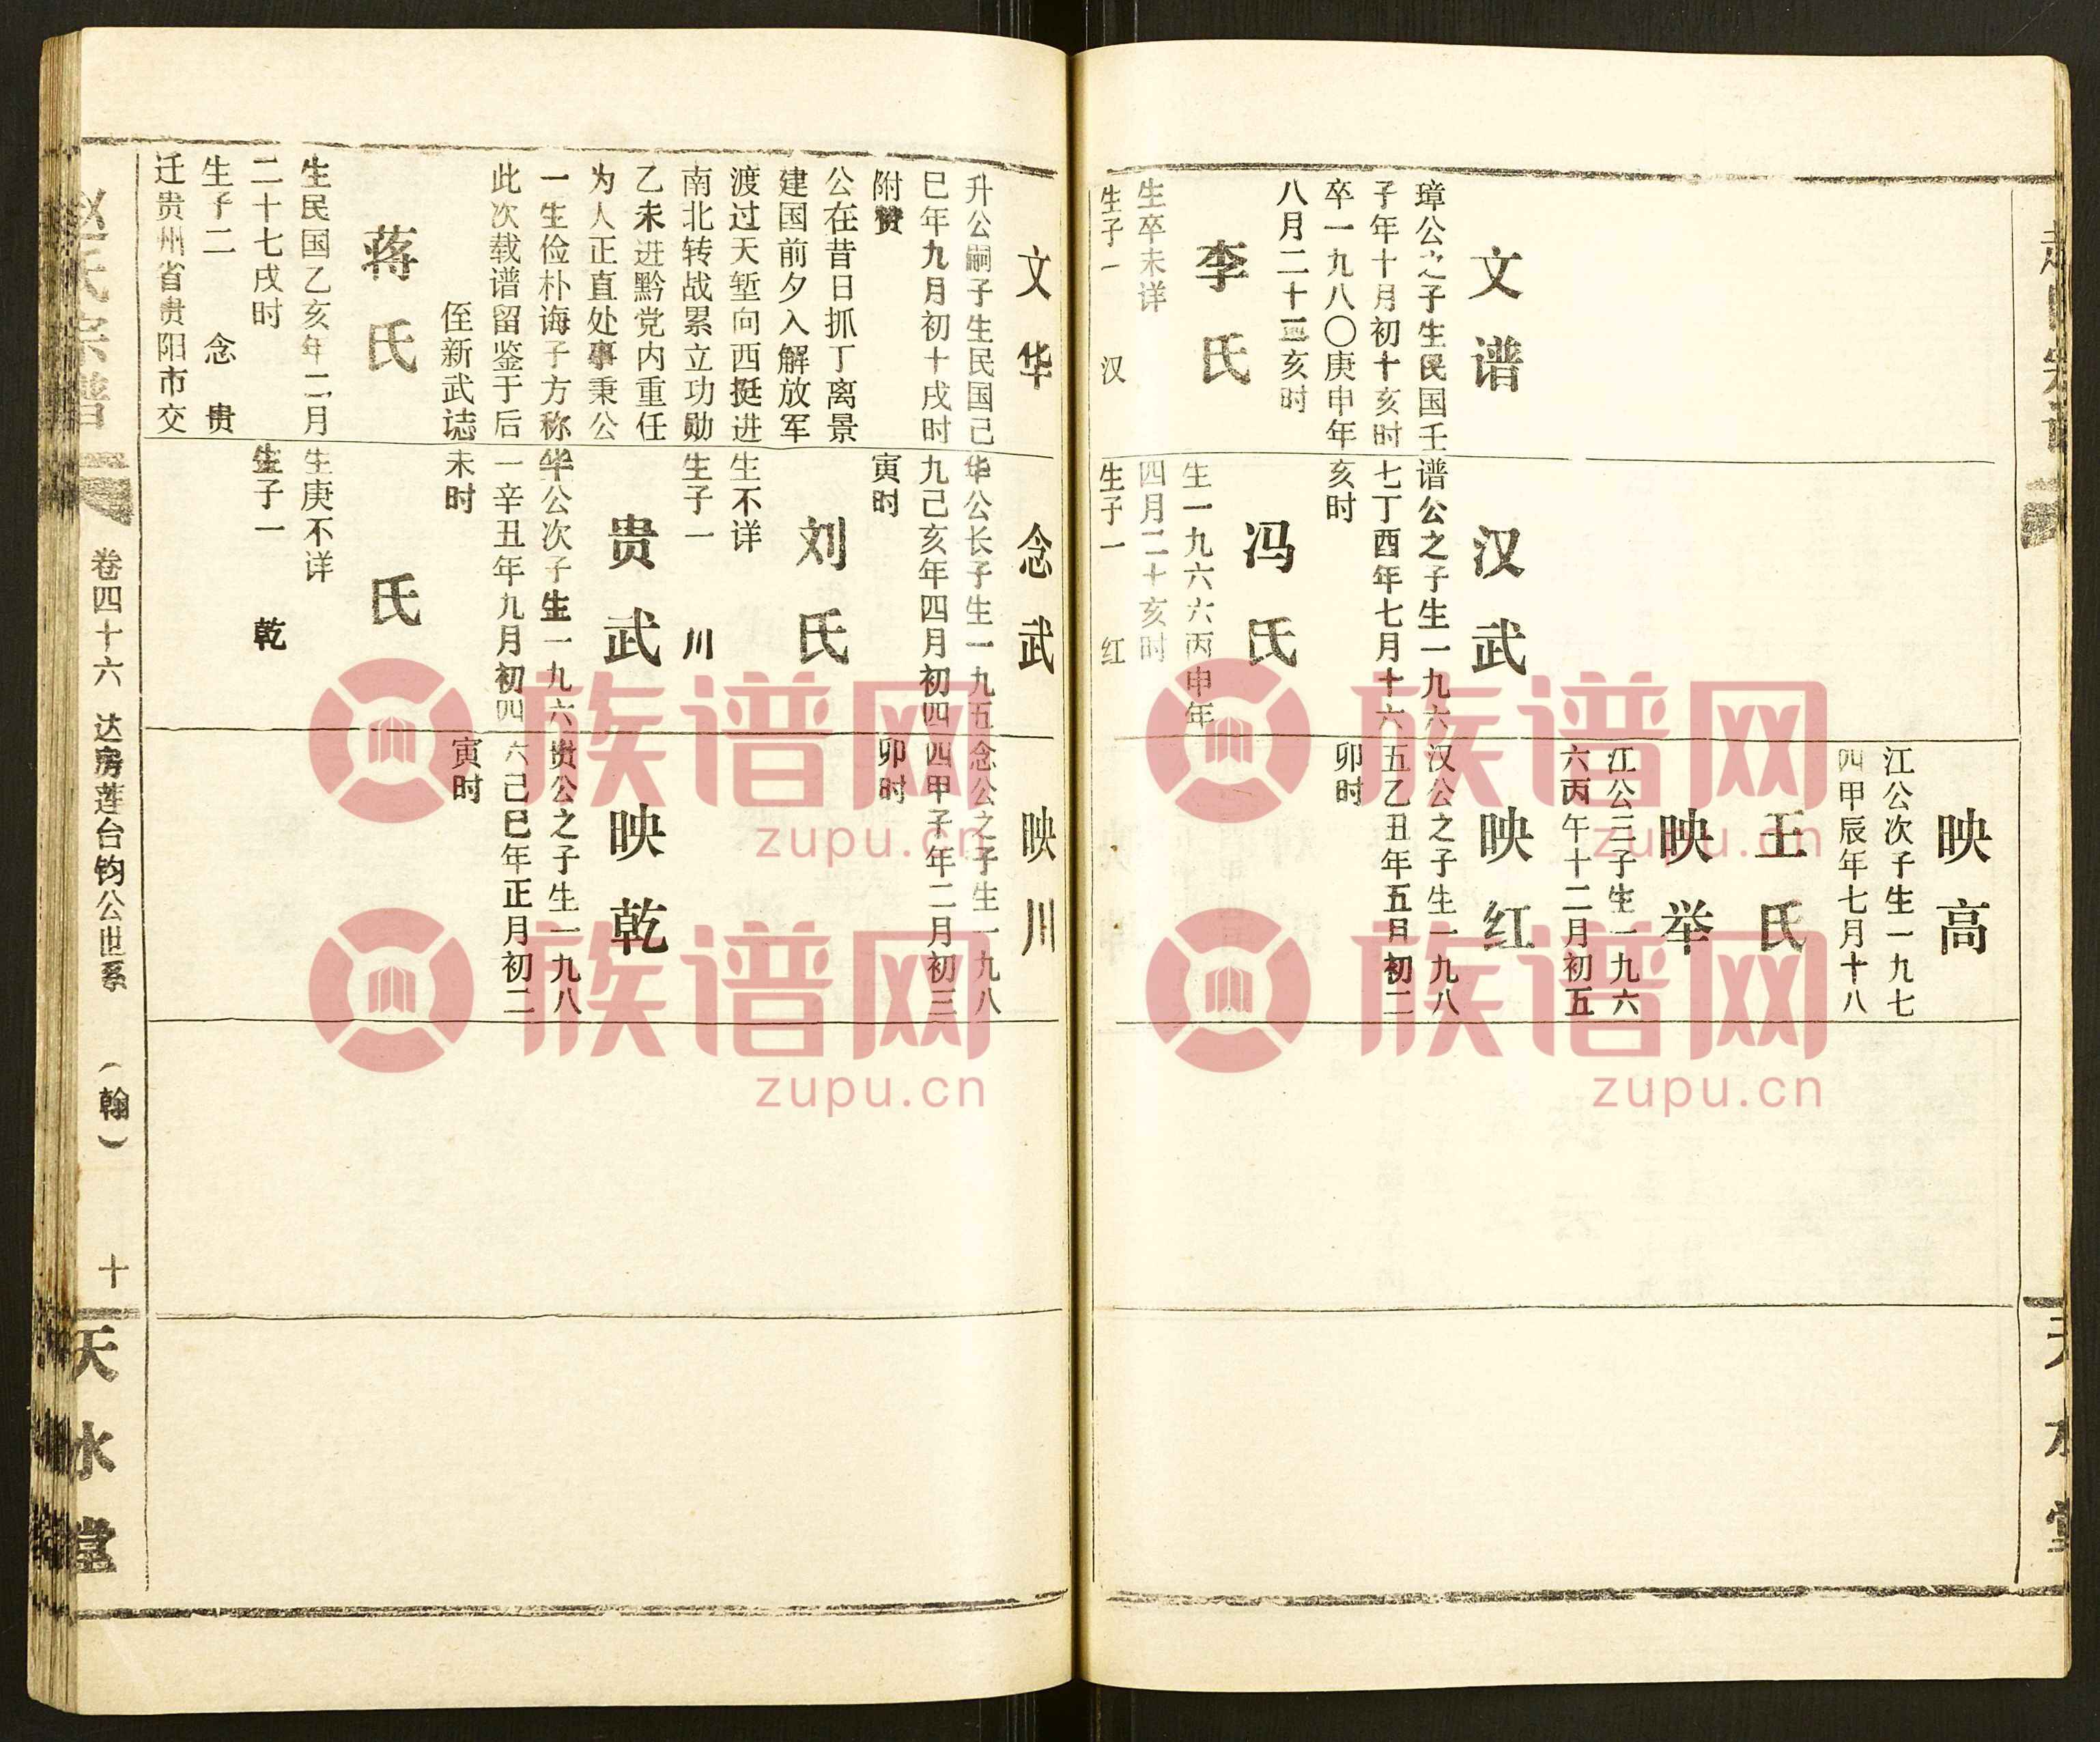 文谱
璋公之子生民国壬
子年十月初十亥时
卒一九八〇庚申年
八月二十三亥时
李氏
生卒未详
生子一 汉
汉武
谱公之子生一九六
七丁酉年七月十六
亥时
冯氏
生一九六六丙申年
四月二十亥时
生子一 红
映高
江公次子生一九七
四甲辰年七月十八
王氏
映举
江公三子生一九六
六丙午十二月初五
映红
汉公之子生一九八
五乙丑年五月初二
卯时
文华
升公嗣子生民国己
巳年九月初十戌时
附赞
公在昔日抓丁离景
建国前夕入解放军
渡过天堑向西挺进
南北转战累立功勋
乙未进黔党内重任
为人正直处事秉公
一生俭朴诲子方称
此次载谱留鉴于后
侄新武誌
蒋氏
生民国乙亥年二月
二十七戌时
生子二 念 贵
迁贵州省贵阳市交
念武
华公长子生一九五
九己亥年四月初四
寅时
刘氏
生不详
生子一 川
贵武
华公次子生一九六
一辛丑年九月初四
未时
氏
生庚不详
生子一 乾
映川
念公之子生一九八
四甲子年二月初三
卯时
映乾
贵公之子生一九八
六己巳年正月初二
寅时
赵氏宗谱
卷四十六 达房莲台钧公世系 (翰) 十
天水堂
族谱网
zupu.cn
族谱网
zupu.cn
族谱网
zupu.cn
族谱网
zupu.cn